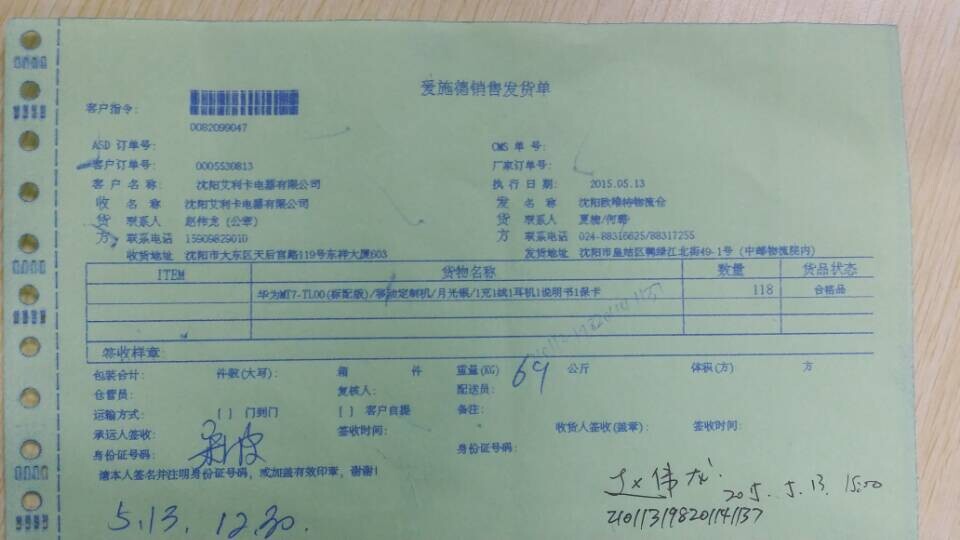 爱施德销售发货单
客户指令:
0082099047
ASD 订单号: CMS 单 号:
客户订单号: 0005530813 厂家订单号:
客 户 名 称: 沈阳艾利卡电器有限公司 执 行 日 期: 2015.05.13
收 名 称 沈阳艾利卡电器有限公司 发 名 称 沈阳欧唯特物流仓
货 联系人 赵伟龙 (公章) 货 联系人 夏楠/何骅
方 联系电话 15909829010 方 联系电话 024-88316625/88317255
收货地址 沈阳市大东区天后宫路119号东祥大厦603 发货地址 沈阳市皇姑区鸭绿江北街49-1号 (中邮物流院内)
ITEM 货物名称 数量 货品状态
华为MT7-TL00(标配版)/移动定制机/月光银/1充1线1耳机1说明书1保卡 118 合格品
签收样章:
包装合计: 件数(大写): 箱 件 重量(KG) 69 公斤 体积(方) 方
仓管员: 复核人: 配送员:
运输方式: [ ] 门到门 [ ] 客户自提 备注:
承运人签收: 签收时间: 收货人签收(盖章): 签收时间:
身份证号码: 身份证号码:
请本人签名并注明身份证号码, 或加盖有效印章, 谢谢!
赵伟龙 2015.5.13. 15:00
210113198201141137
5.13. 12.30.